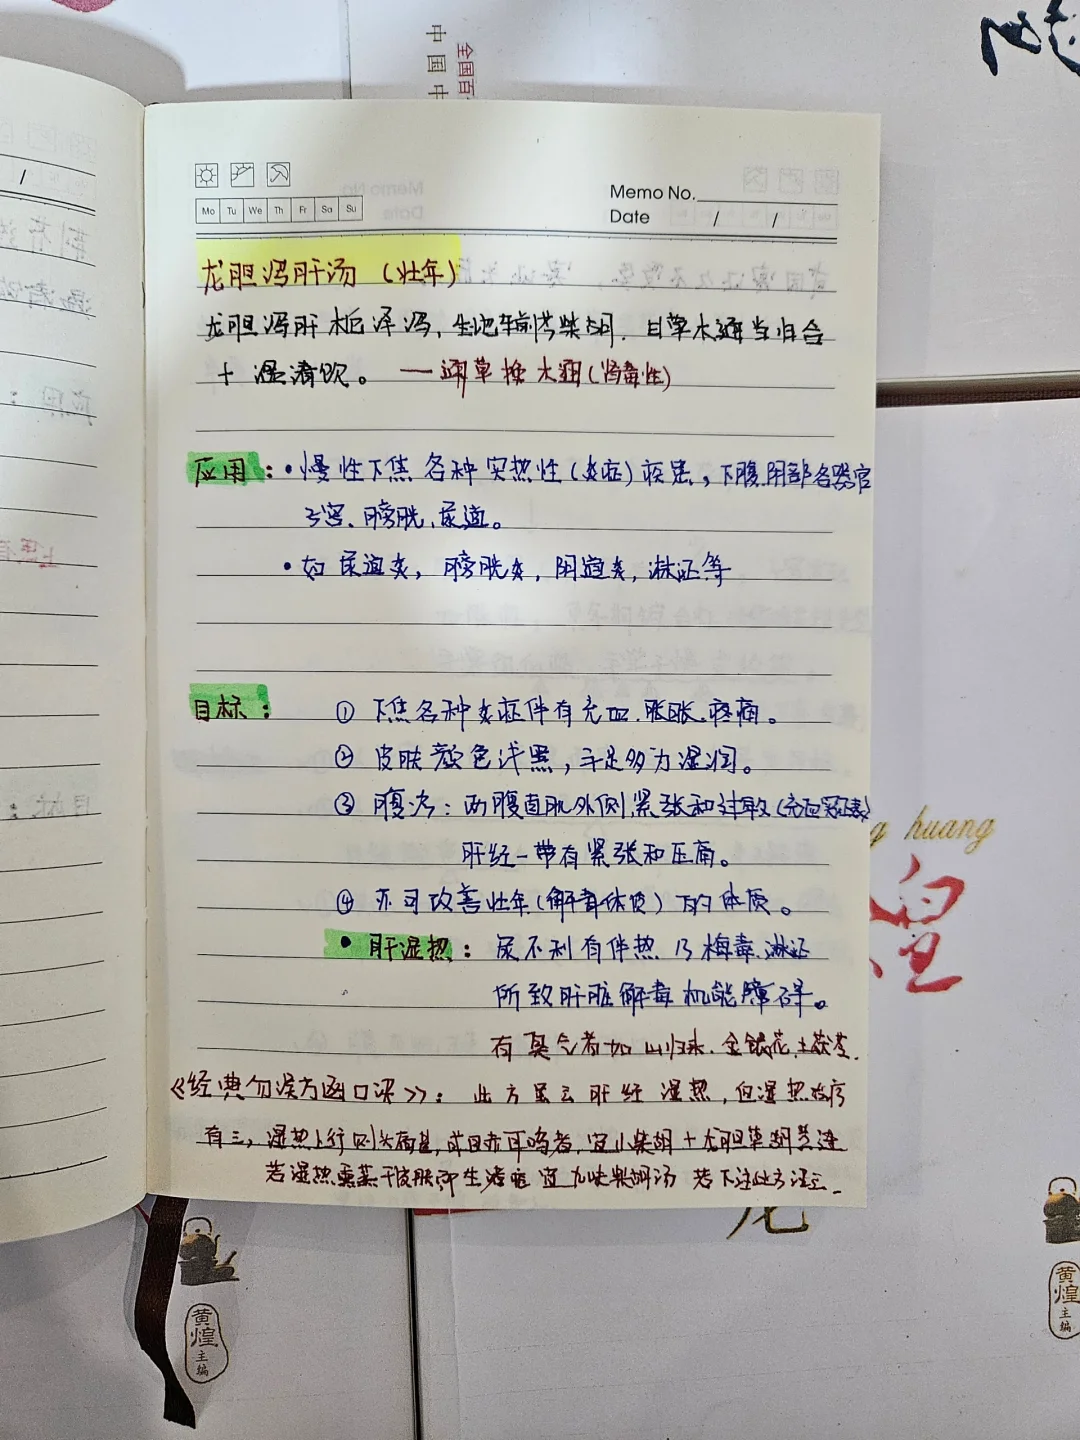 中国中
全国百
Memo No.
Mo Tu We Th Fr Sa Su
Date / /
龙胆泻肝汤（壮年）
龙胆泻肝栀泽泻，生地车前芩柴胡．甘草木通当归合
＋温清饮。—通草换木通（肾毒性）
应用：•慢性下焦各种实热性（炎症）疾患，下腹.阴部各器官
子宫、膀胱、尿道。
•如尿道炎，膀胱炎，阴道炎，淋证等
目标：① 下焦各种炎症伴有充血.肿胀.疼痛。
② 皮肤颜色浅黑，手足多为湿润。
③ 腹诊：两腹直肌外侧紧张和过敏（
肝经一带有紧张和压痛。
④ 亦可改善壮年（解毒体质）的体质。
•肝湿热：尿不利有伴热 乃梅毒.淋证
所致肝脏解毒机能障碍。
有 加山归来.金银花.土茯苓.
《经典 汉方 口诀》：此方虽云肝经湿热，但湿热治疗
有三，湿热上行则头痛甚，或目赤耳鸣者，宜小柴胡＋龙胆草胡黄连
若湿热熏蒸于皮肤即生 宜九味柴胡汤 若下注此方
g huang
煌
龙
黄煌
主编
黄煌
主编